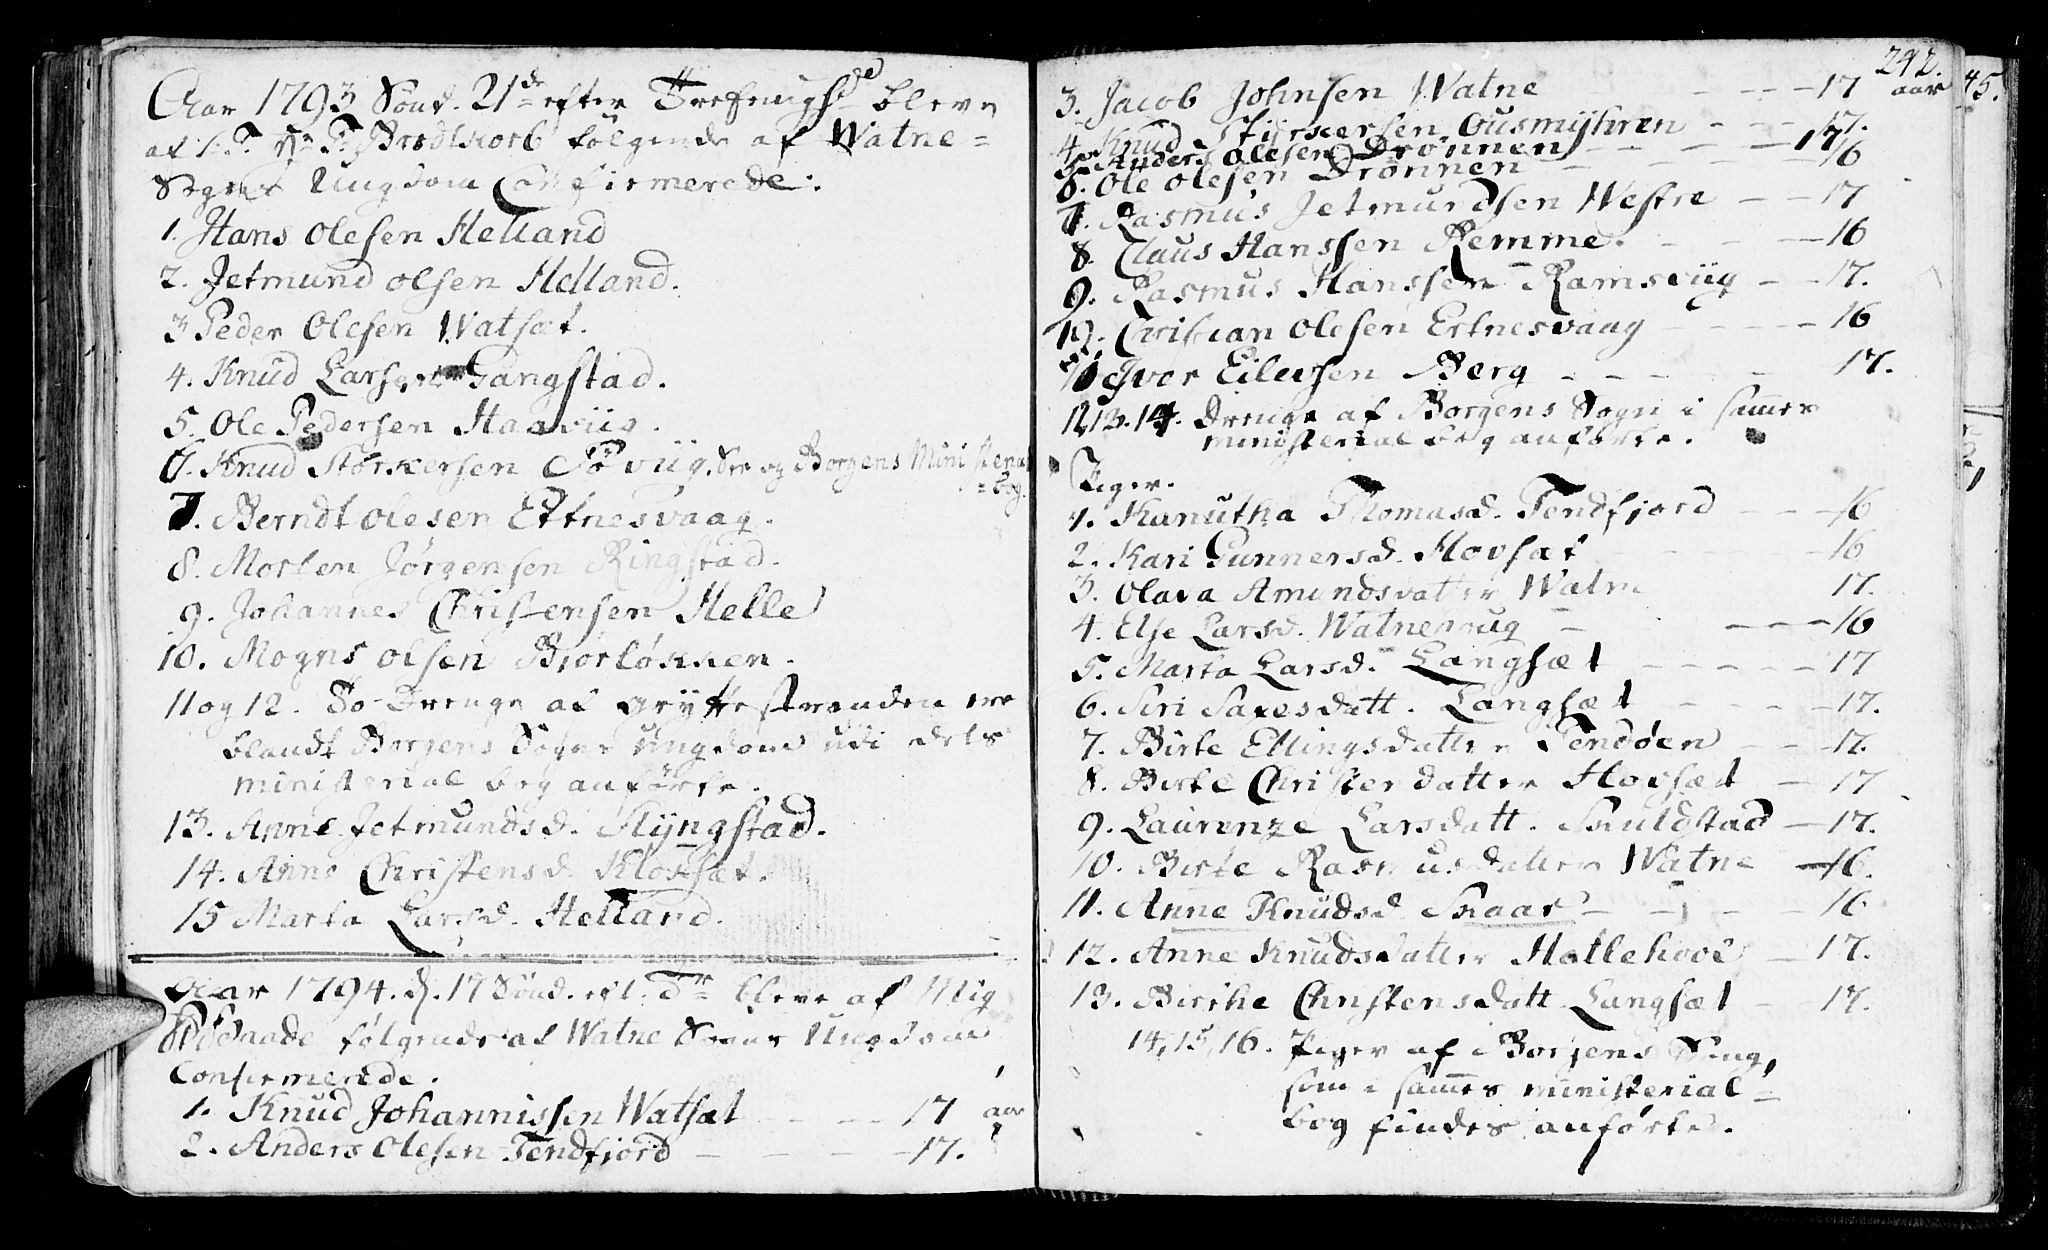 Aar 1793 Sönd. 21de efter Trefoldighd bleve
af Hr Bredkorb følgende af Watne-
Sogns Ungdom Confirmerede:
1. Hans Olesen Helland
2. Jetmund olsen Helland.
3 Peder Olesen Watsæt.
4. Knud Larsen Gangstad.
5. Ole Pedersen Haaviig.
6. Knud Størkersen Søviig. See og Borgens Ministerial
=bog.
7. Berndt olesen Ertnesvaag.
8. Morten Jørgensen Ringstad.
9. Johannes Christensen Helle
10. Mogns olsen Biørløkken.
11 og 12. To Drenge af Gryttestranden ere
blandt Borgens Sogns Ungdom udi dets
ministerial bog anførte.
13. Anne Jetmundsd. Slyngstad.
14. Anne Christensd. Klokset.
15 Marta Larsd. Helland.
Aar 1794. d. 17 Sönd. eft. Tr. bleve af Mig
følgende af Watne Sogns Ungdom
Confirmerede.
1. Knud Johannissen Watsæt - - - 17 aar
2. Anders Olesen Tendfjord - - - - 17.
242.
3. Jacob Johnsen Watne - - - - 17 aar
4. Knud Styrkersen Ousmyhren - - - 17.
5. Anders Olesen Drønnen - - - 17
6. Ole olesen Drønnen - - - - 16
7. Rasmus Jetmundsen Westre - - 17
8. Claus Hanssen Remme. - - - - 16
9. Rasmus Hanssen Ramsviig - - 17.
10. Christian Olesen Ertnesvaag - - - - 16
11 Iver Eilersen Berg - - - - - 17.
12, 13. 14. Drenge af Borgens Sogn i samme
ministerial bog anførte.
Piger.
1. Kanutha Thomasd. Tendfjord - - - 16
2. Kari Gunnersd. Hovsæt - - - - 16
3. Olava Amundsdatter Watne 17.
4. Else Larsd. Watnehoug - - - - 16
5. Marta Larsd. Langsæt - - - - - 17
6. Siri Saxesdatt. Langsæt - - - - 17.
7. Birte Ellingsdatter Tendøen - - 17.
8. Birte Christensdatter Hovsæt - 17
9. Laurenze Larsdatt. Skuldstad - 17.
10. Birte Rasmusdatter Watne - 16.
11. Anne Knudsd Skaar - - - - 16
12. Anne Knudsdatter Hallehoel - 17.
13. Birthe Christensdatt Langsæt - 17.
14, 15, 16. Piger af Borgens Sogn,
som i sammes ministerial-
bog findes anførte.